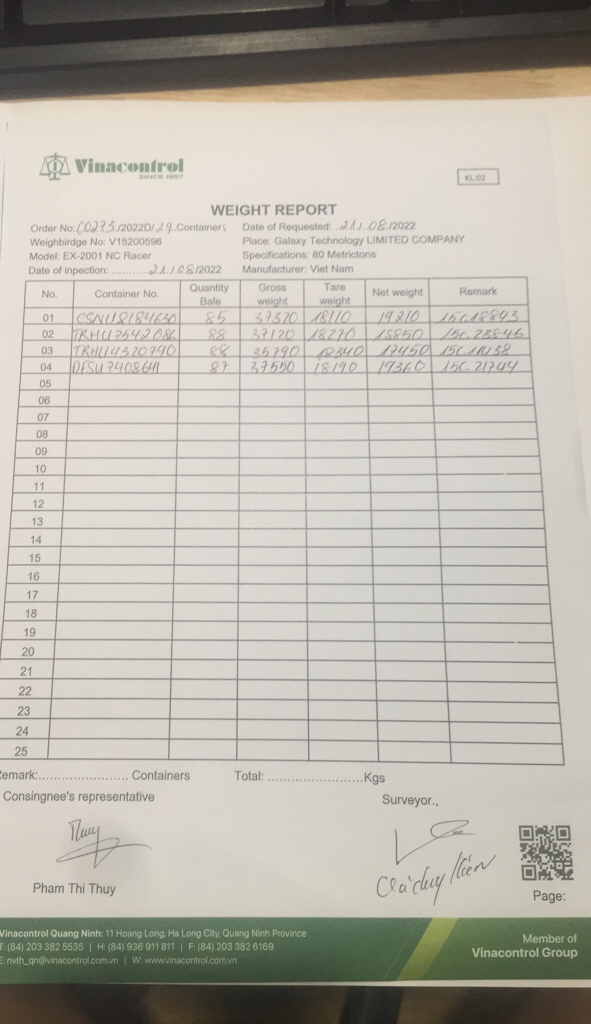 Vinacontrol
SINCE 1957
KL.02
WEIGHT REPORT
Order No: 00273/2022D/29 Containers Date of Requested: 21/08/2022
Weighbirdge No: V15200596 Place: Galaxy Technology LIMITED COMPANY
Model: EX-2001 NC Racer Specifications: 80 Metrictons
Date of inpection: ..........21/08/2022 Manufacturer: Viet Nam
No. Container No. Quantity Bale Gross weight Tare weight Net weight Remark
01 CSNU8184630 85 37320 18110 19210 15C
02 TRHU7542086 88 37120 18270 18850 15C.23846
03 TRHU4320790 88 35790 18340 17450 15C
04 DFSU7408641 87 37550 18190 19360 15C.21744
05
06
07
08
09
10
11
12
13
14
15
16
17
18
19
20
21
22
23
24
25
emark:....................... Containers Total: ........................Kgs
Consingnee's representative Surveyor.,
Thuy
Pham Thi Thuy
Page:
Vinacontrol Quang Ninh: 11 Hoang Long, Ha Long City, Quang Ninh Province
T: (84) 203 382 5535 | H: (84) 936 911 811 | F: (84) 203 382 6169
E: nvth_qn@vinacontrol.com.vn | W: www.vinacontrol.com.vn
Member of
Vinacontrol Group